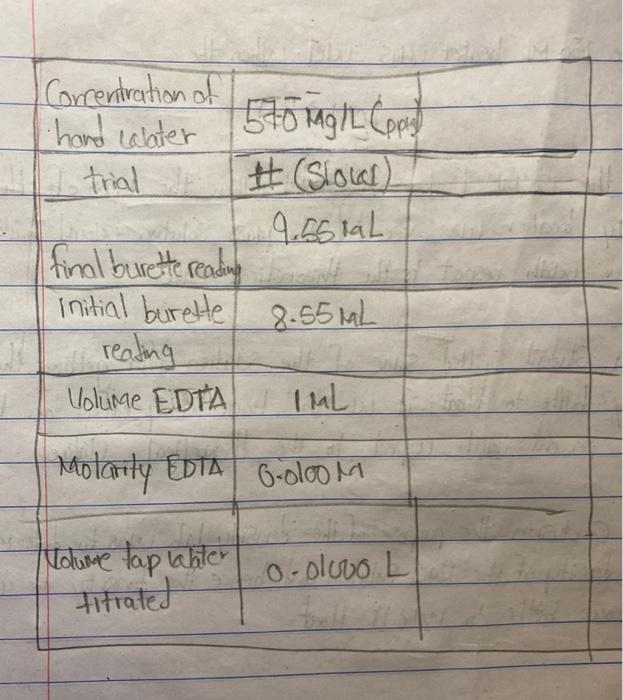 Concentration of
hard water
570 Mg/L (ppm)
trial
# (Slow)
9.55 mL
final burette reading
Initial burette
reading
8.55 mL
Volume EDTA
1 mL
Molarity EDTA
0.0100 M
Volume tap water
titrated
0.01000 L